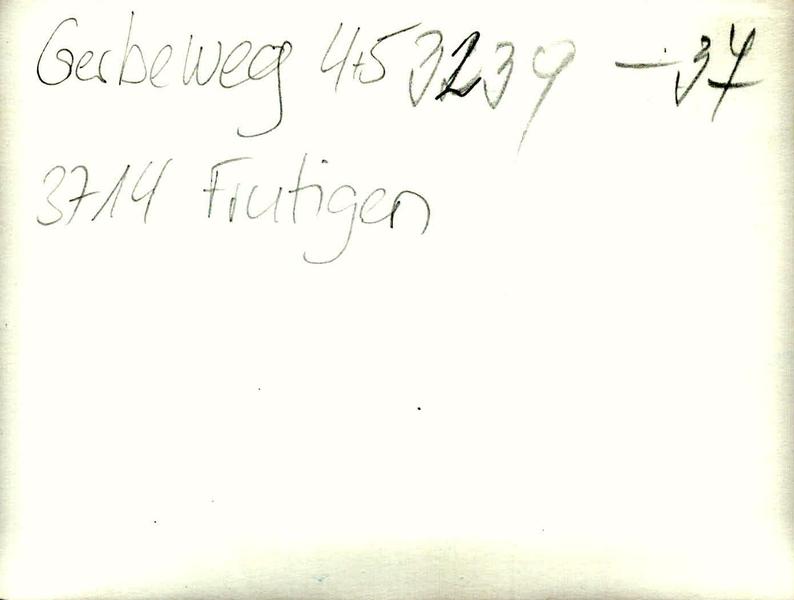 Gerbeweg 4+5 3239 - 34
3714 Frutigen